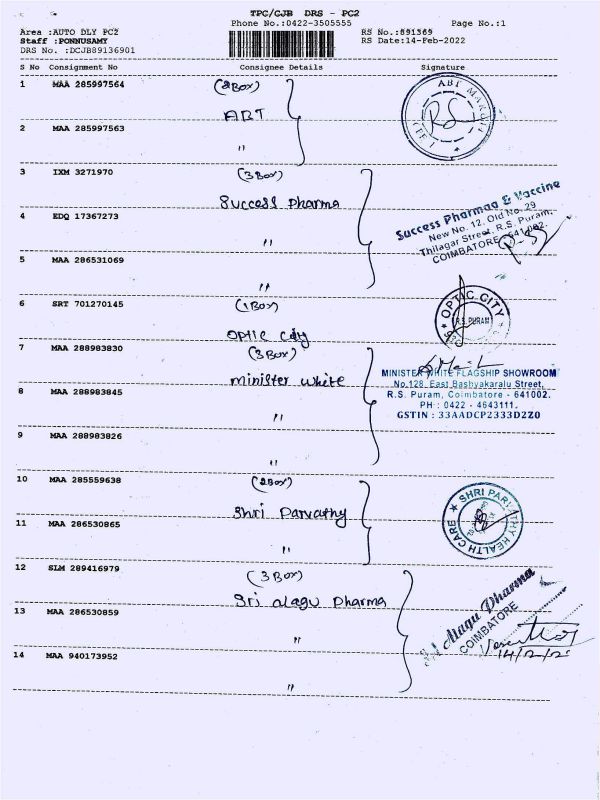 TPC/CJB DRS - PC2
Phone No.:0422-3505555
Page No.:1
Area :AUTO DLY PC2
Staff :PONNUSAMY
DRS No. :DCJB89136901
RS No.:891369
RS Date:14-Feb-2022
S No Consignment No Consignee Details Signature
1 MAA 285997564 (2Box)
ABT
ABT MARUTI
2 MAA 285997563 "
3 IXM 3271970 (3Box)
Success pharma
Success Pharmaa & Vaccine
New No. 12, Old No. 29
Thilagar Street, R.S. Puram,
COIMBATORE - 641 002.
4 EDQ 17367273 "
5 MAA 286531069 "
6 SRT 701270145 (1Box)
optic city
OPTIC CITY
R.S. PURAM
7 MAA 288983830 (3Box)
minister white
MINISTER WHITE FLAGSHIP SHOWROOM
No.128, East Bashyakaralu Street,
R.S. Puram, Coimbatore - 641002.
PH : 0422 - 4643111.
GSTIN : 33AADCP2333D2Z0
8 MAA 288983845 "
9 MAA 288983826
10 MAA 285559638 (2Box)
Shri Parvathy
SHRI PARVATHY HEALTH CARE
11 MAA 286530865 "
12 SLM 289416979 (3Box)
Sri alagu pharma
Sri Alagu Pharma
COIMBATORE
13 MAA 286530859 "
14 MAA 940173952 "